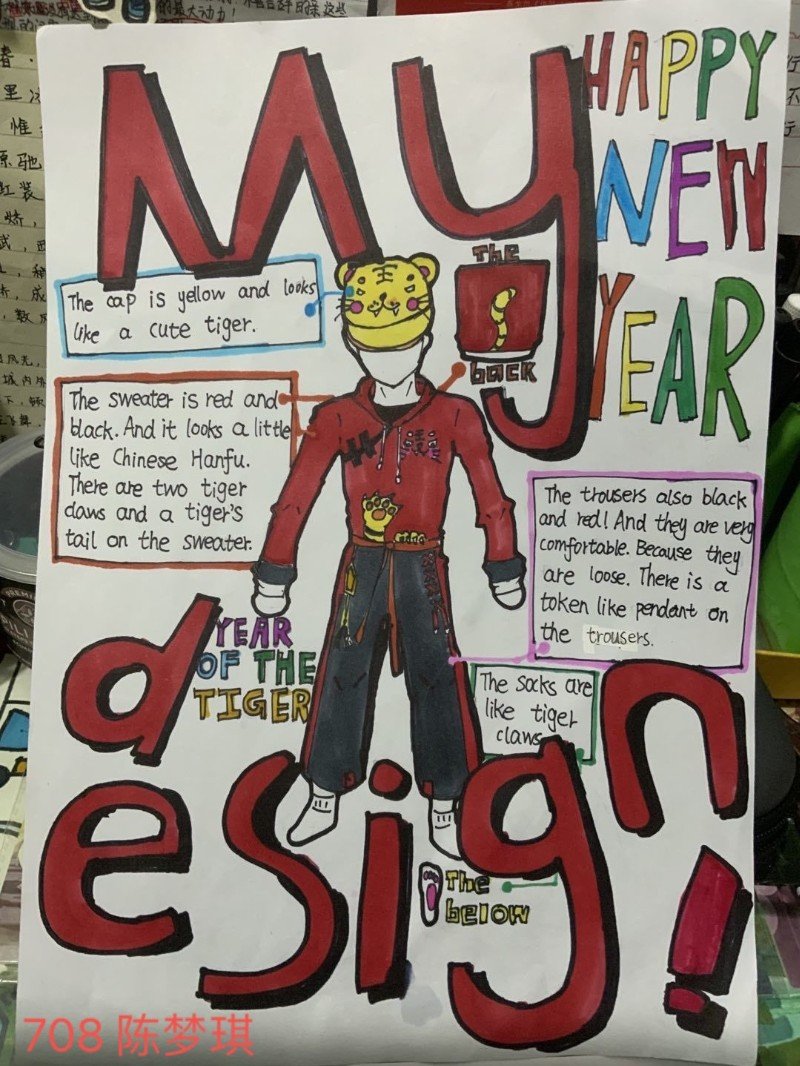 My
HAPPY
NEW
YEAR
The cap is yellow and looks
like a cute tiger.
The
back
The sweater is red and
black. And it looks a little
like Chinese Hanfu.
There are two tiger
claws and a tiger's
tail on the sweater.
The trousers also black
and red! And they are very
comfortable. Because they
are loose. There is a
token like pendant on
the trousers.
YEAR
OF THE
TIGER
The socks are
like tiger
claws
design!
The
below
708 陈梦琪